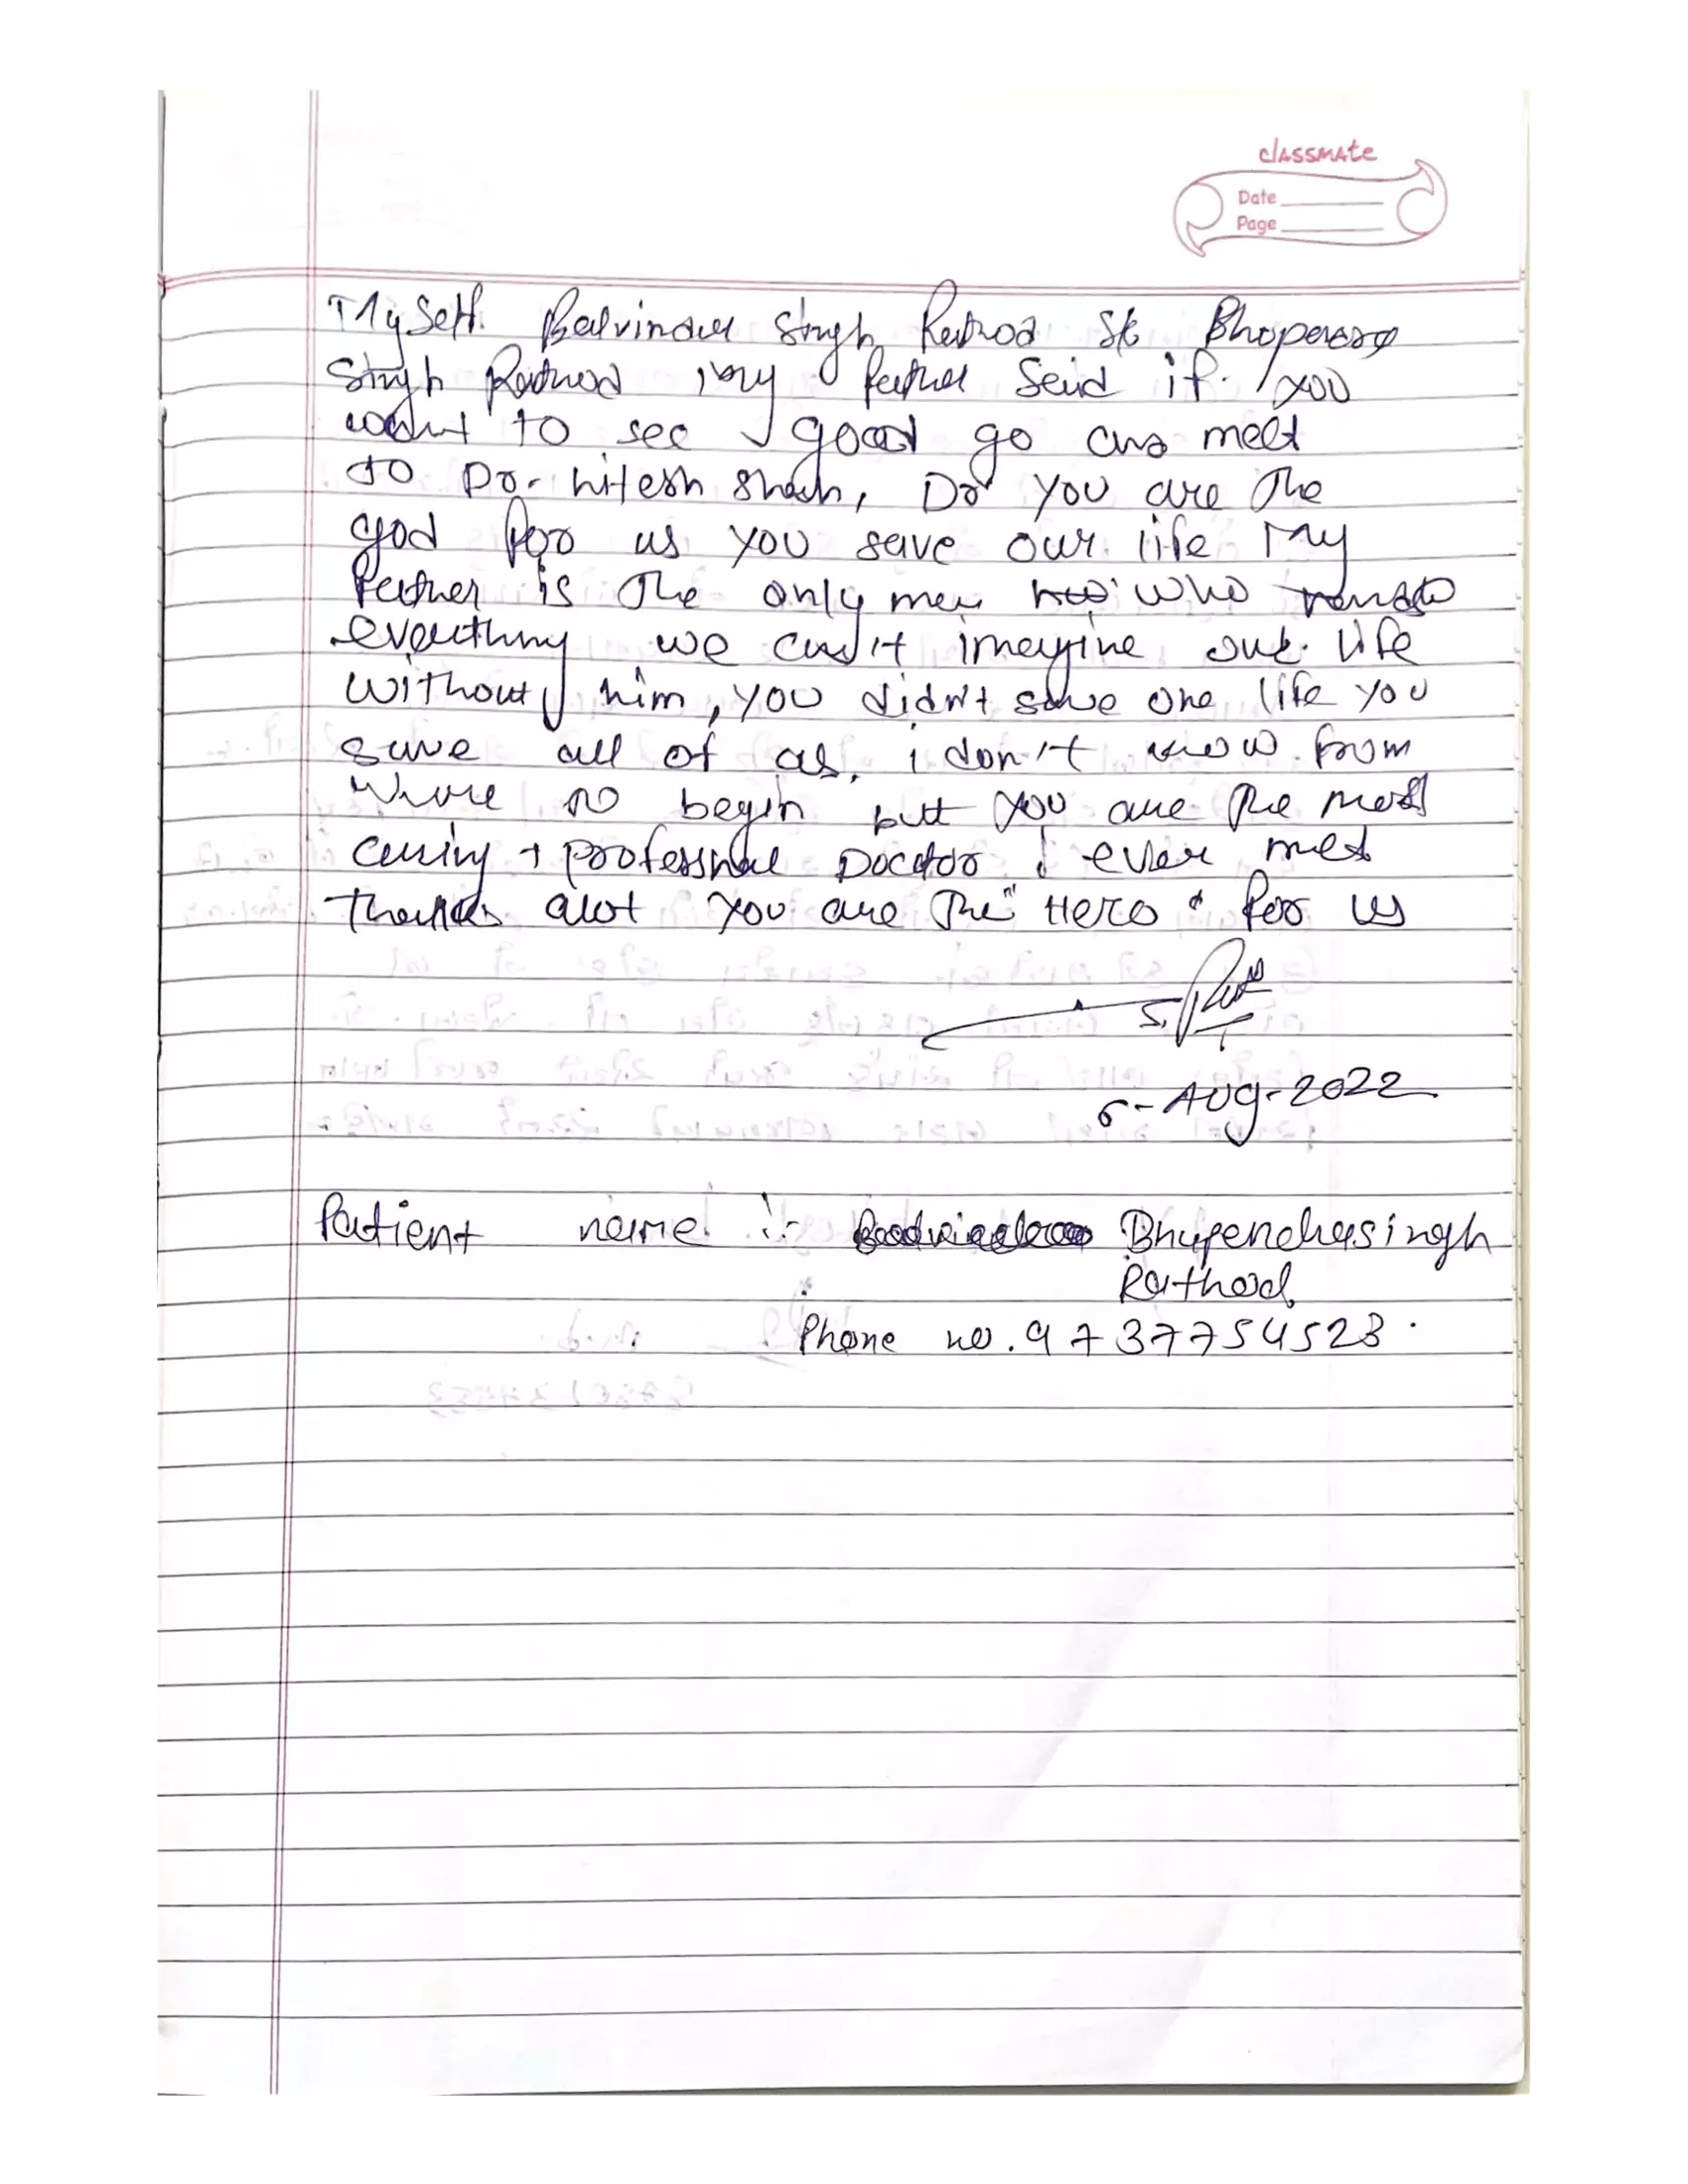 classmate
Date
Page
Myself. Balvinder Singh Rathod S/o
Singh Rathod my father said if you
want to see good go and meet
to Dr. hitesh shah, Dr you are the
god for us you save our life My
Father is the only men who
everything we can't imagine our life
without him, you didn't save one life you
save all of us. i don't know from
where to begin but you are the most
caring + Doctor i ever met
thanks alot you are the "Hero" for us
6-Aug-2022
Patient name :- Bhupendrasingh
Rathod
Phone no. 9737754523.